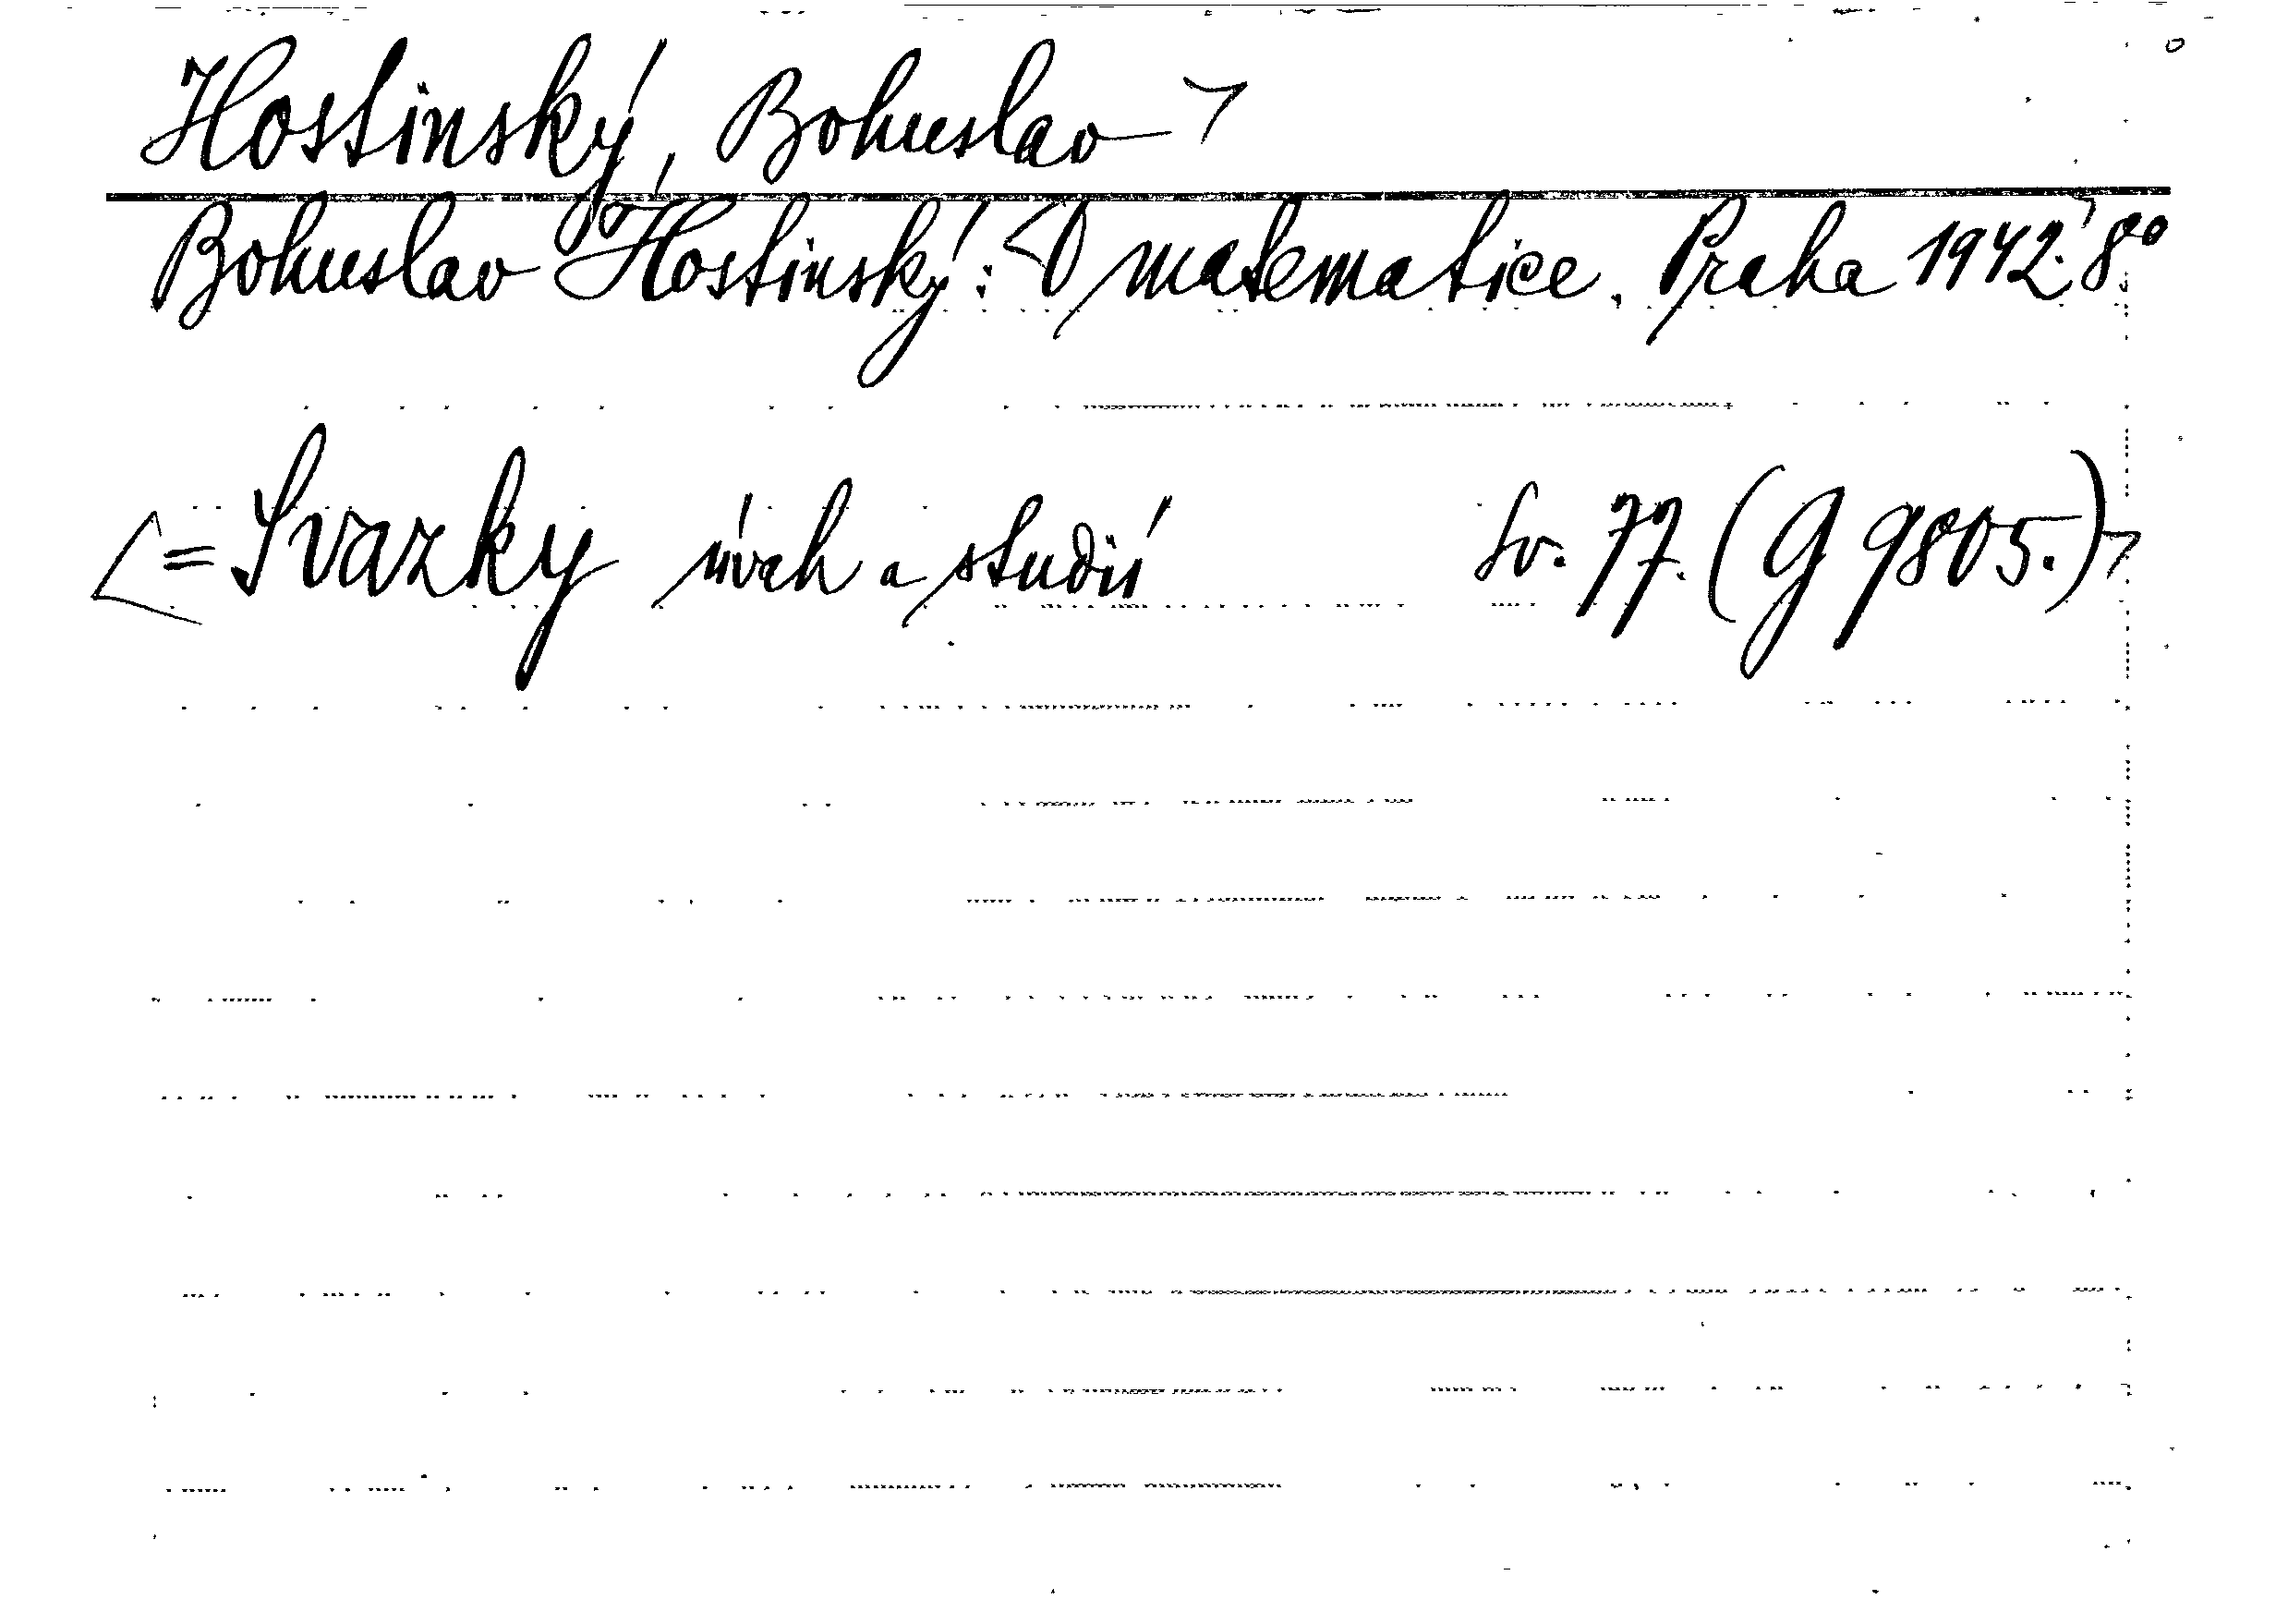 Hostinský, Bohuslav
Bohuslav Hostinský: O matematice. Praha 1942. 8°.
= Svazky úvah a studií sv. 77. (G 9805.)